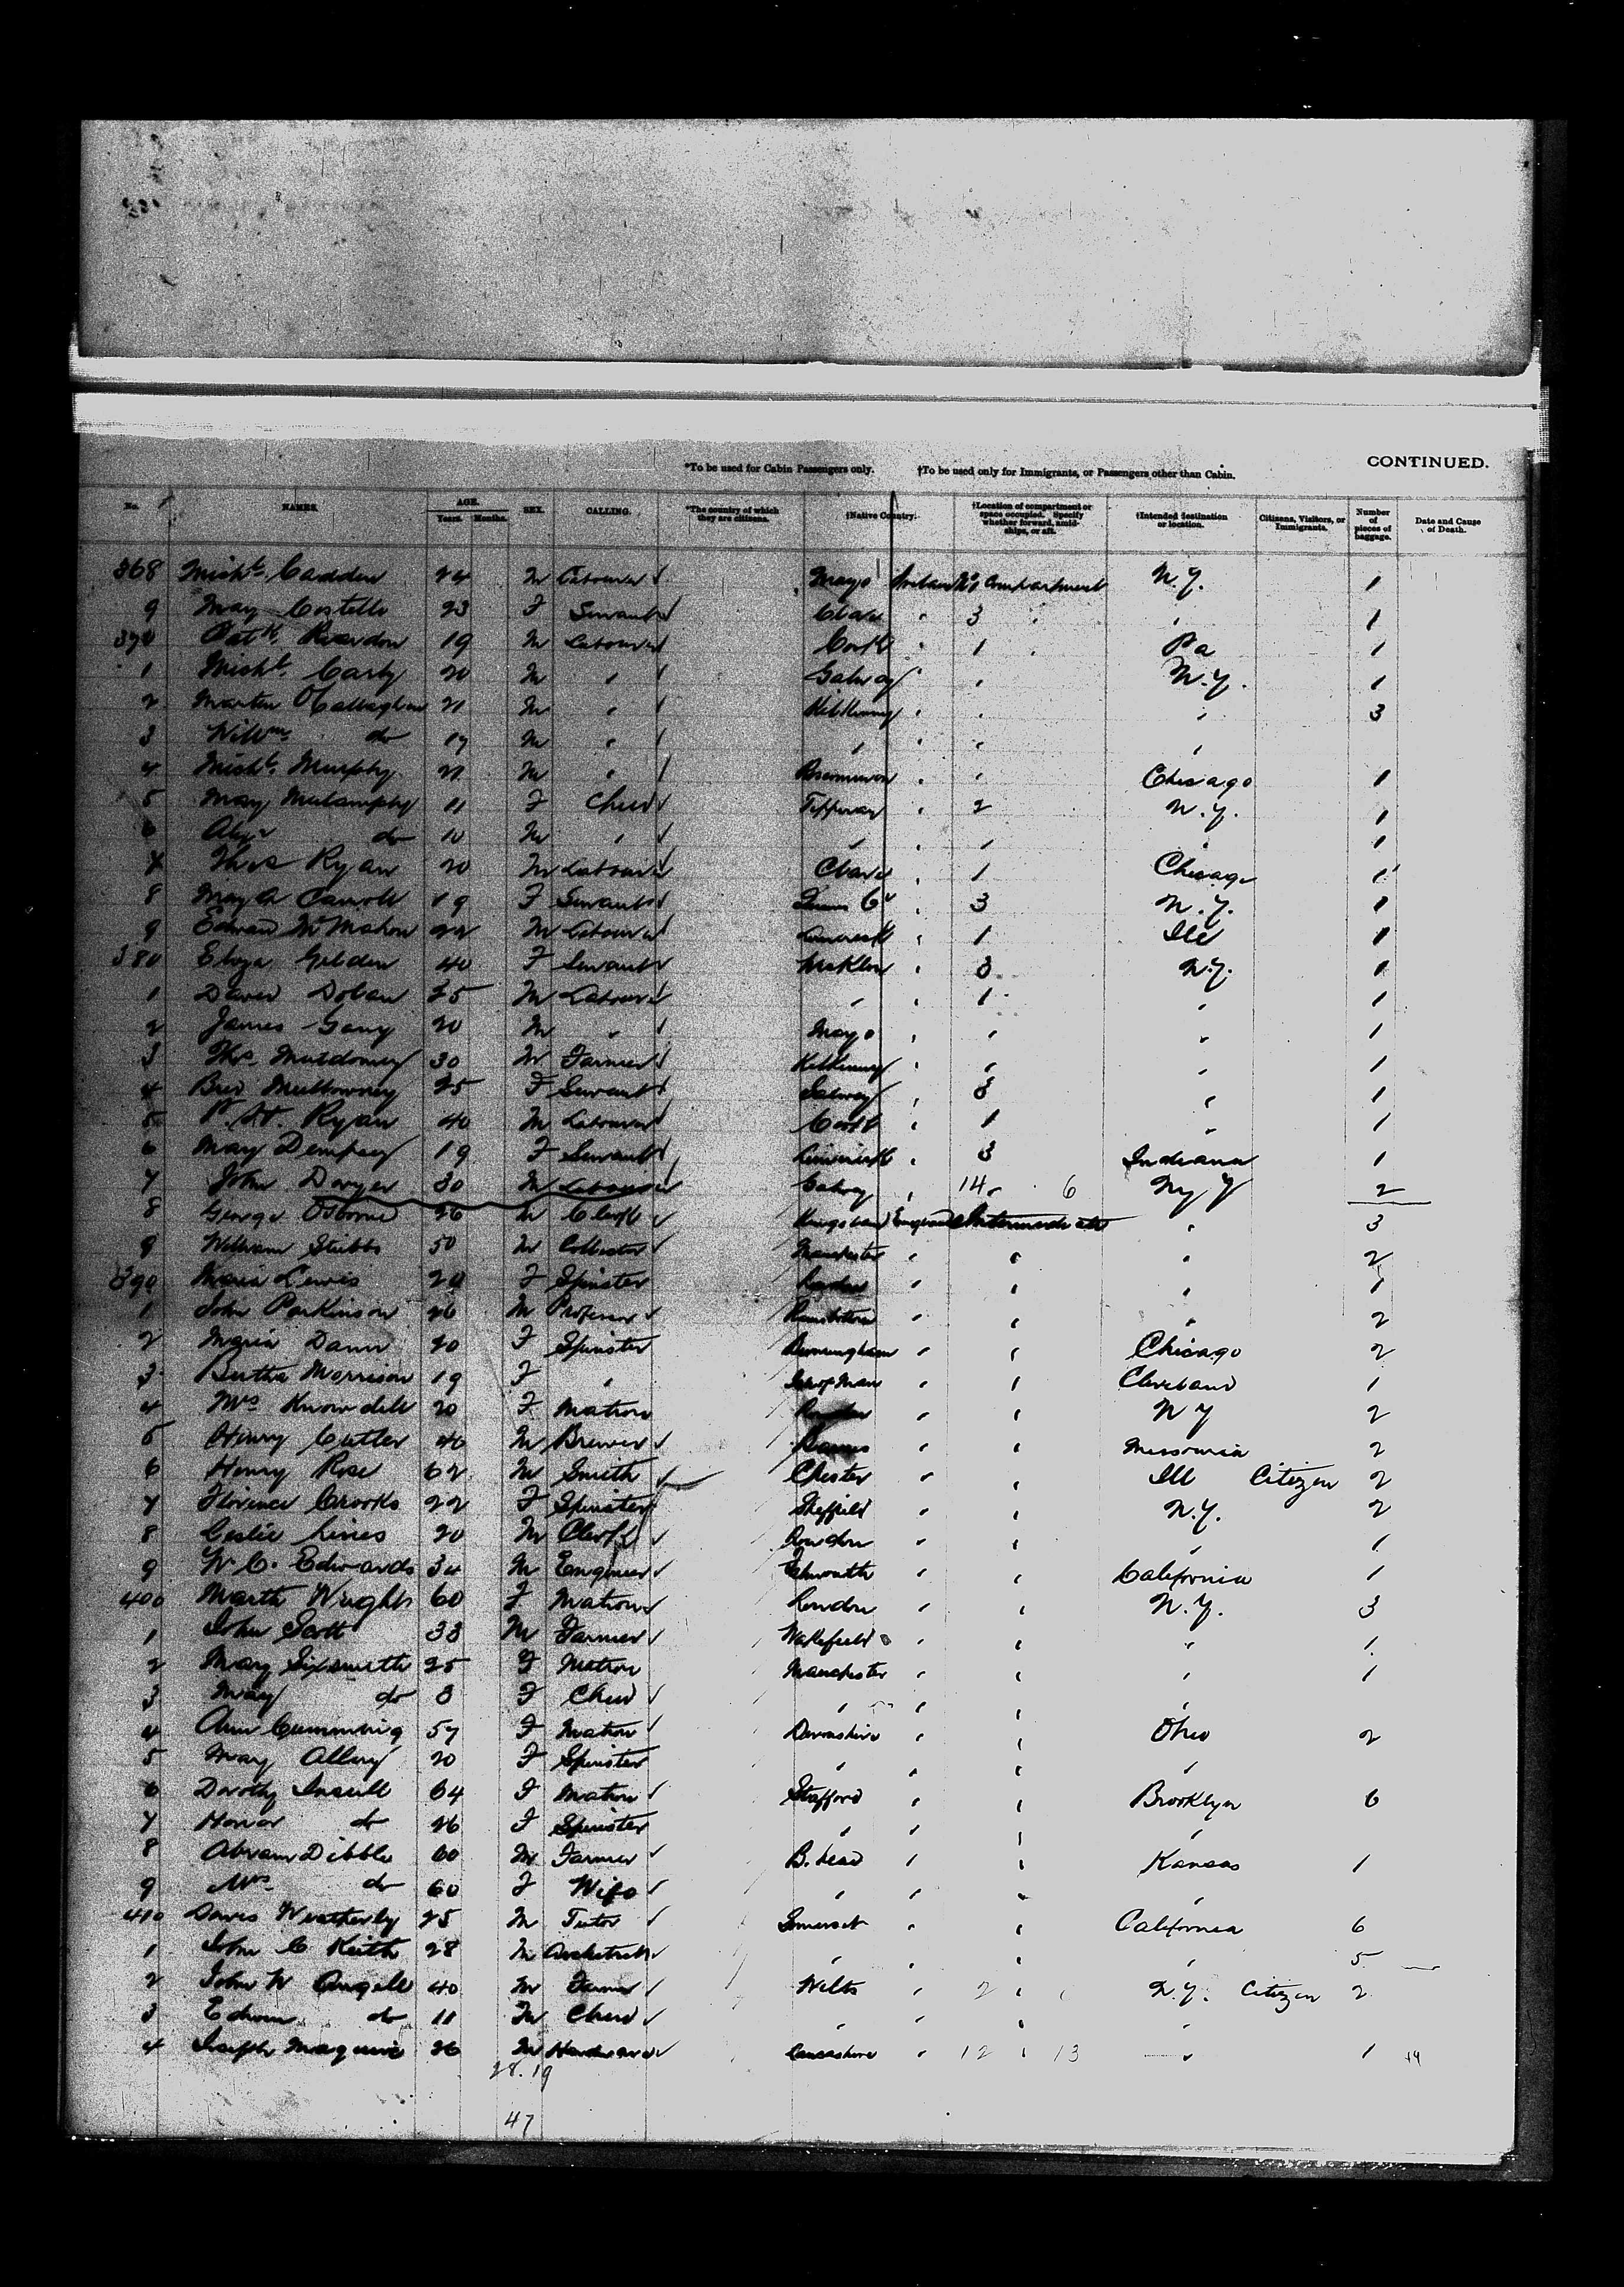 CONTINUED.
*To be used for Cabin Passengers only. †To be used only for Immigrants, or Passengers other than Cabin.
No. NAMES. AGE. Years. Months. SEX. CALLING. *The country of which they are citizens. †Native Country. †Location of compartment or space occupied. Specify whether forward, amidships, or aft. †Intended destination or location. Citizens, Visitors, or Immigrants. Number of pieces of baggage. Date and Cause of Death.
368 Michl. Cadden 24 M Labourer Mayo Ireland No 1 Compartment N.Y. 1
9 May Costello 23 F Servant Clare " 3 " " 1
370 Patk. Reardon 19 M Labourer Cork " 1 " Pa 1
1 Michl. 20 M " Galway " " N.Y. 1
2 Martin O'Callaghan 21 M " Kilkenny " " " 3
3 Willm. do 17 M " " " " "
4 Michl. Murphy 21 M " " " Chicago 1
5 May 11 F Child Tipperary " 2 N.Y. 1
6 do 10 M " " " " " 1
7 Thos Ryan 20 M Labourer Clare " 1 Chicago 1
8 May A Carroll 19 F Servant " 3 N.Y. 1
9 Edward McMahon 22 M Labourer Limerick " 1 Ill 1
380 Eliza 40 F Servant " 3 N.Y. 1
1 David Dolan 35 M Labourer " " 1 " 1
2 James 20 M " Mayo " " " 1
3 Thos. 30 M Farmer Kilkenny " " " 1
4 25 F Servant Galway " 3 " 1
5 Ryan 40 M Labourer Cork " 1 " 1
6 May Dempsey 19 F Servant Limerick " 3 Indiana 1
7 John Dwyer 30 M Labourer Galway " 14 " 6 N Y 2
8 George Osborne 26 M Clerk England Intermediate " 3
9 William Stubbs 50 M Collector Manchester " " " 2
390 Maria Lewis 20 F Spinster London " " " 1
1 John Parkinson 26 M Professor Ramsbottom " " " 2
2 Maria Dann 20 F Spinster Birmingham " " Chicago 2
3 Bertha Morrison 19 F " Isle of Man " " Cleveland 1
4 Mrs Knowdell 20 F Matron London " " N Y 2
5 Henry Cutler 40 M Brewer " " 2
6 Henry Rose 62 M Smith Chester " " Ill Citizen 2
7 Florence Crooks 22 F Spinster Sheffield " " N.Y. 2
8 Leslie Lines 20 M Clerk London " " " 1
9 W. C. Edwards 34 M Engineer " " California 1
400 Marth Wright 60 F Matron London " " N.Y. 3
1 John Scott 33 M Farmer Wakefield " " " 1
2 Mary Sixsmith 25 F Matron Manchester " " " 1
3 May do 3 F Child " " " "
4 Ann Cumming 57 F Matron Devonshire " " Ohio 2
5 May 20 F Spinster " " " "
6 Dorothy Insull 64 F Matron Stafford " " Brooklyn 6
7 Honor do 26 F Spinster " " " "
8 Abram Dibble 60 M Farmer B. head " " Kansas 1
9 Mrs. do 60 F Wife " " " "
410 Weatherly 25 M Tutor Somerset " " California 6
1 John C Keith 28 M Architect " " " " 5
2 John W Angell 40 M Farmer Wilts " 2 " " N.Y. Citizen 2
3 Edwin do 11 M Child " " " "
4 Joseph Maguire 26 M Lancashire " 12 " 13 " 1
28. 19
47